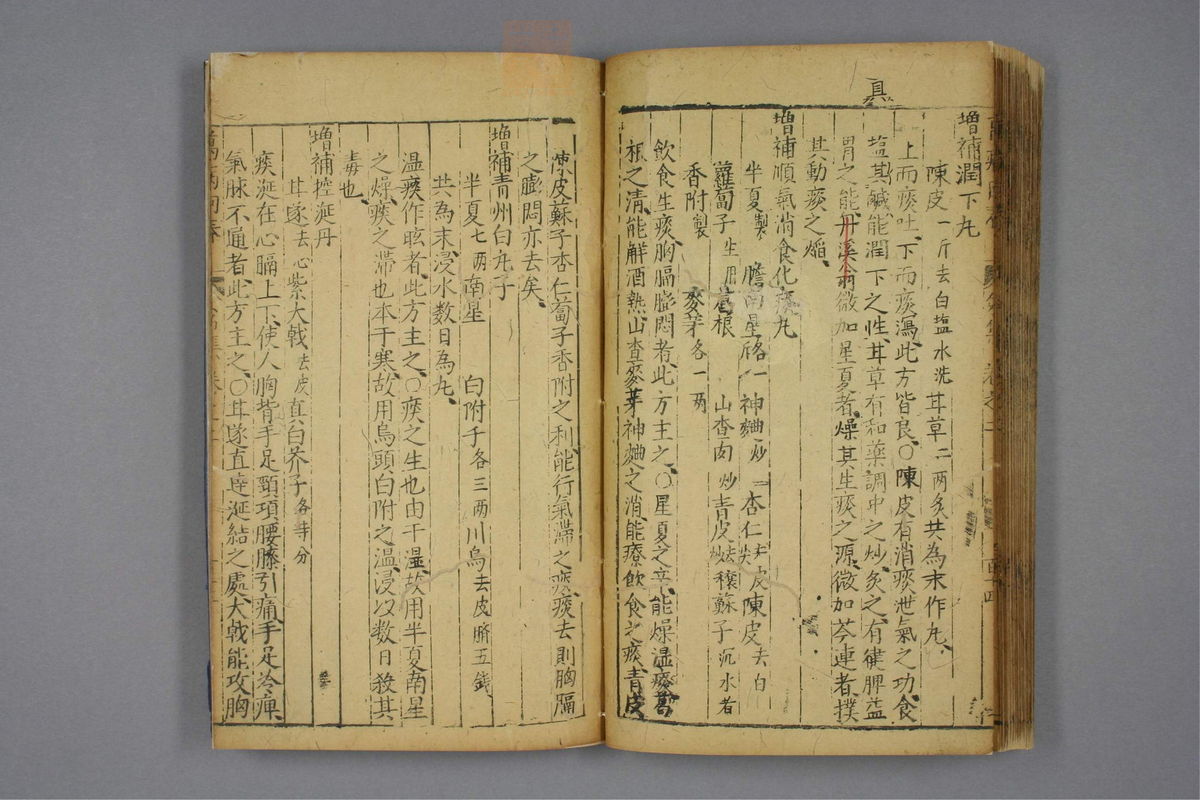 具
增補潤下丸
陳皮一斤去白塩水洗甘草二兩炙共為末作丸
上而痰吐下而痰瀉此方皆良〇陳皮有消痰泄氣之功食
塩其鹹能潤下之性甘草有和藥調中之妙炙之有健脾益
胃之能丹溪翁微加星夏者燥其生痰之源微加芩連者撲
其動痰之熖
增補順氣消食化痰丸
半夏製 膽南星各一 神麯炒 杏仁去皮尖 陳皮去白
蘿蔔子生用 葛根 山查肉炒 青皮去穰炒 蘇子沉水者
香附製 麥芽各一兩
飲食生痰胸膈膨悶者此方主之〇星夏之辛能燥湿痰葛
根之清能解酒熱山查麥芽神麯之消能療飲食之痰青皮
陳皮蘇子杏仁蔔子香附之利能行氣滯之痰痰去則胸膈
之膨悶亦去矣
增補青州白丸子
半夏七兩南星 白附子各三兩川烏去皮臍五錢
共為末浸水数日為丸
温痰作眩者此方主之〇痰之生也由于湿故用半夏南星
之燥痰之滞也本于寒故用烏頭白附之温浸以数日殺其
毒也
增補控涎丹
甘遂去心紫大戟去皮真白芥子各等分
痰涎在心膈上下使人胸背手足頸項腰膝引痛手足冷痺
氣脉不通者此方主之〇甘遂直達涎結之處大戟能攻胸